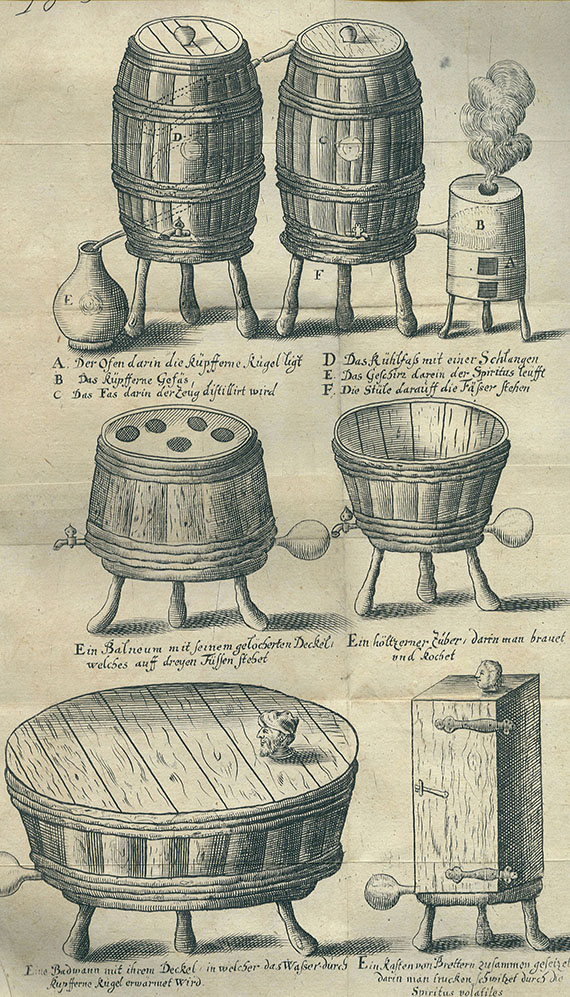 A. Der Ofen darin die küpfferne kugel ligt
B Das küpfferne Gefäs,
C Das Fas darin der Zeug distillirt wird
D Das kühlfaß mit einer Schlangen
E. Das Geschirz darein der Spiritus leufft
F. Die Stüle darauff die Fässer stehen
D
C
B
A
E
F
Ein Balneum mit seinem gelöcherten Deckel,
welches auff dreyen Füssen stehet
Ein höltzerner Züber, darin man brauet
und kochet
Eine Badwann mit ihrem Deckel, in welcher das Wasser durch
küpfferne kugel erwärmet Wird.
Ein kasten von Brettern zusammen gesetzet
darin man trucken schwitzet durch die
Spiritus volatiles